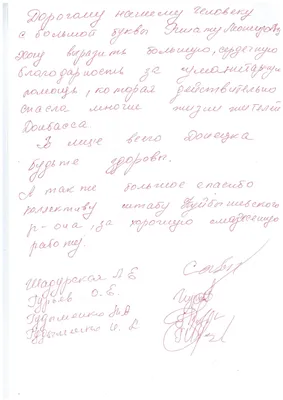 Дорогому нашему человеку
с большой буквы Ринату Леонидов
Хочу выразить большую, сердечную
благодарность за гуманитарную
помощь, которая действительно
спасла многие жизни жителей
Донбасса.
В лице всего Донецка
будьте здоровы.
А так же большое спасибо
коллективу штабу Куйбышевского
р-она, за хорошую слаженную
работу.
Шадурская Л Е
Гуртяв О. Е.
Гудыменко
Гудыменко И. А.